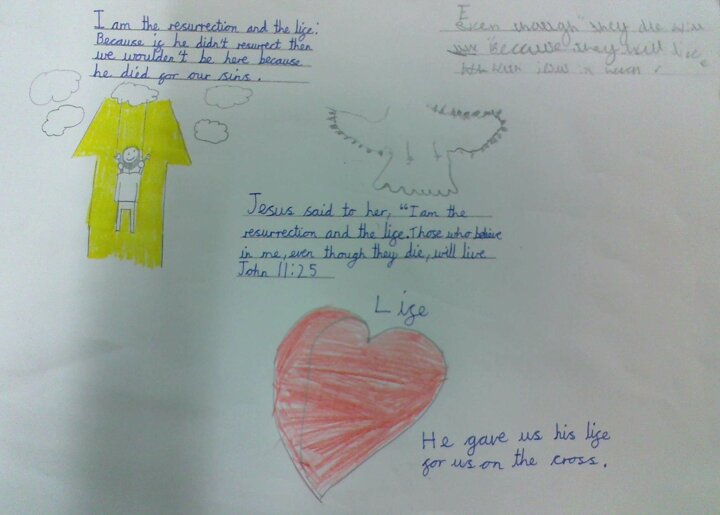 I am the resurrection and the life:
Because if he didn't resurrect then
we wouldn't be here because
he died for our sins.
E
Even though" they die will
"Because they will live
Jesus said to her, "I am the
resurrection and the life. Those who believe
in me, even though they die, will live
John 11:25
Life
He gave us his life
for us on the cross.